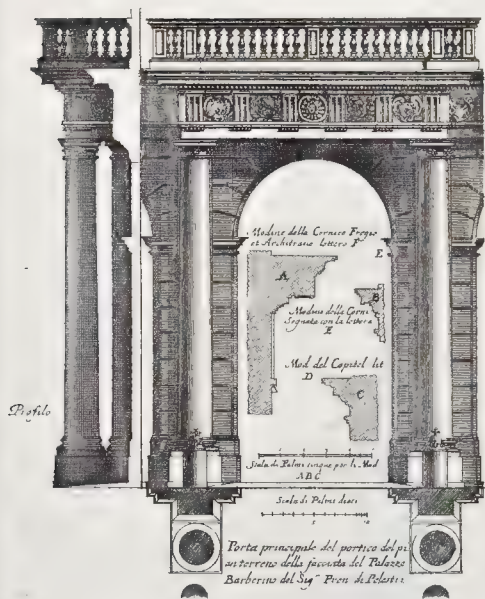 Modine della Cornice Fregio
et Architrave lettera F
E
A
B
Modine della Corni
Segnata con la lettera
E
Mod del Capitel lit
D
C
Profilo
Scala di Palmi cinque per li Mod
A B C
Scala di Palmi dieci
5
10
Porta principale del portico del pi
an terreno della facciata del Palazzo
Barberino del Sig.re Pren di Pelestri.